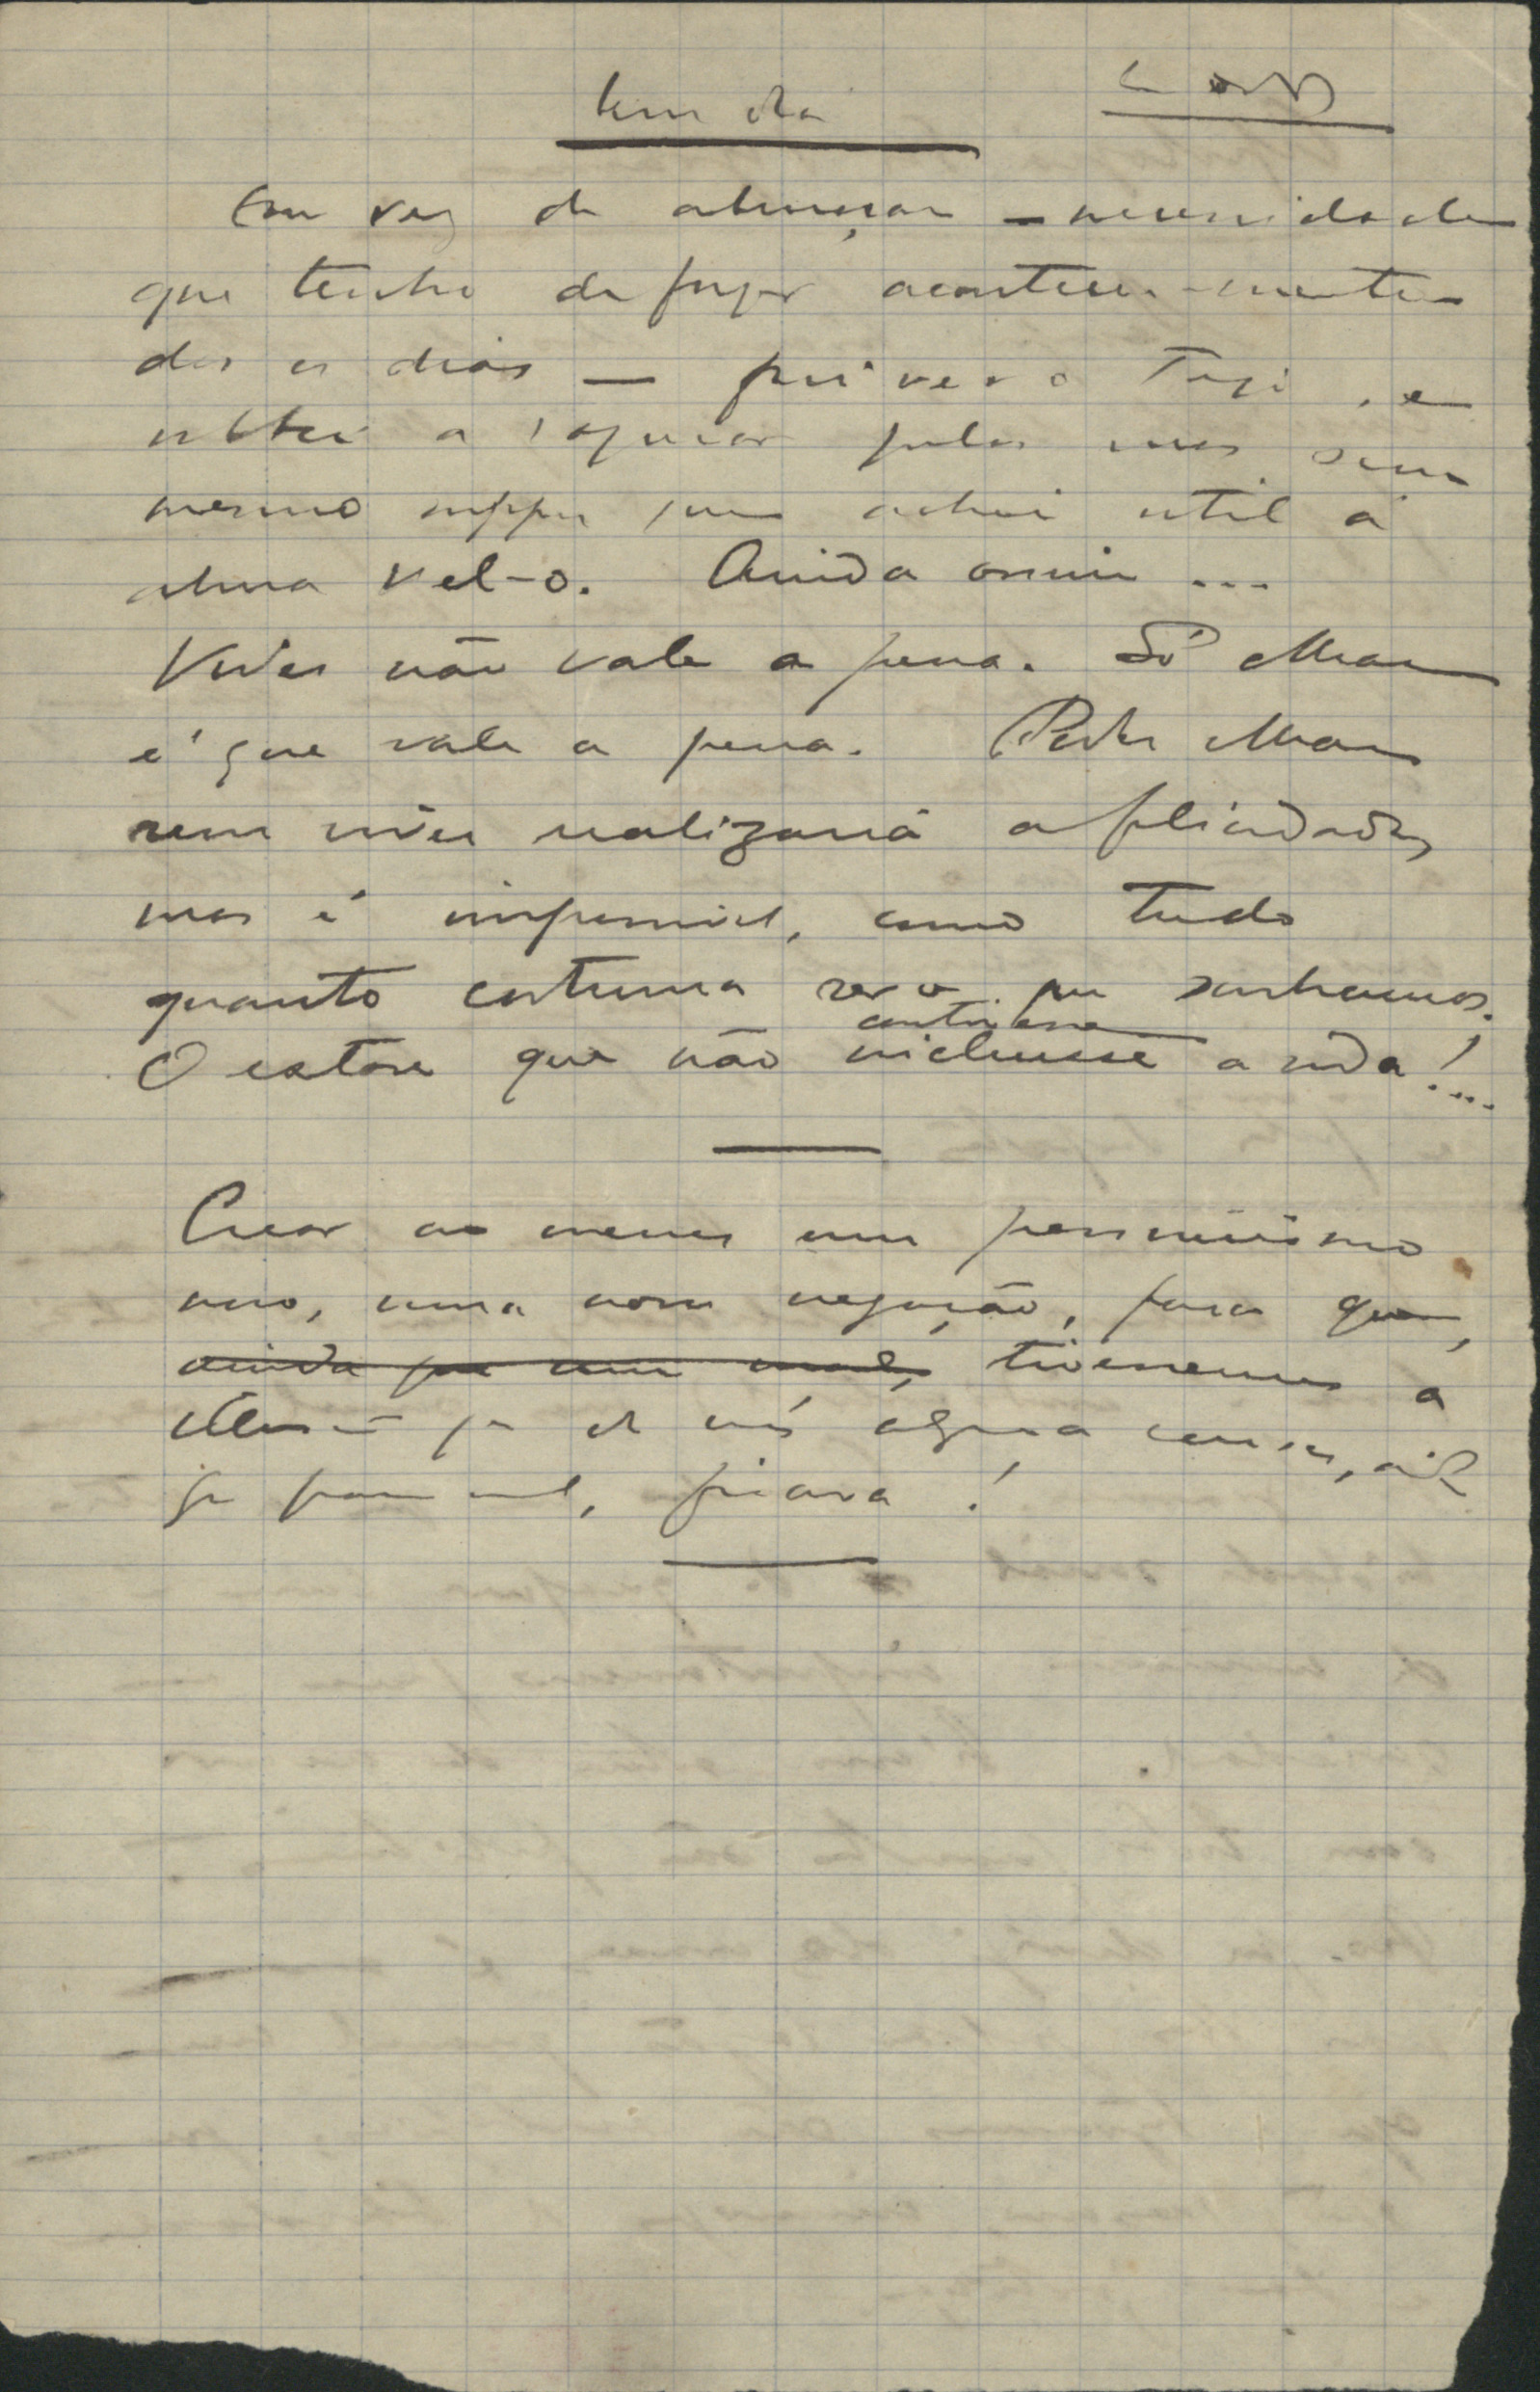 Um dia L. do D.
Em vez de almoçar — necessidade
que tenho de fazer acontecer-me todos
os dias — fui ver o Tejo, e
voltei a vaguear pelas ruas sem
mesmo suppor que achei util á
alma vel-o. Ainda assim ...
Viver não vale a pena. Só olhar
é que vale a pena. Poder olhar
sem viver realizaria a felicidade,
mas é impossivel, como tudo
quanto costuma ser o que sonhamos.
contivesse
O extase que não incluisse a vida!...
Crear ao menos um pessimismo
novo, uma nova negação, para que
ainda que um mal, tivessemos a
illusão que de nós alguma cousa,
que para mal, ficava!